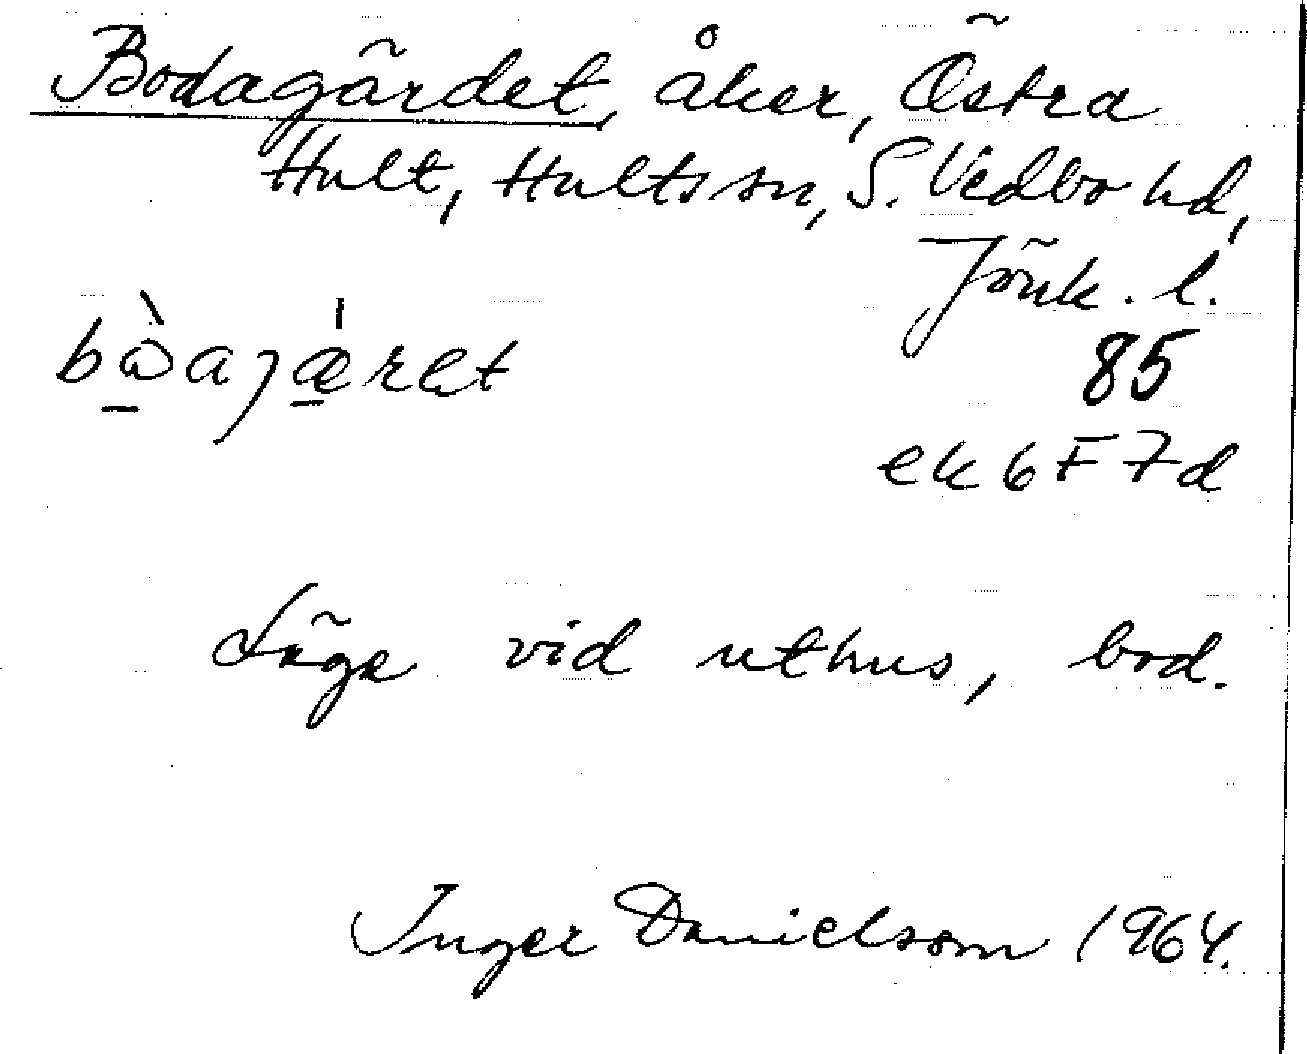 Bodagärdet, åker, Östra
Hult, Hultssn, S. Vedbo hd,
Jönk. l.
bὼaȷǽret
85
ek 6F7d
Läge vid uthus, bod.
Inger Danielsson 1964.